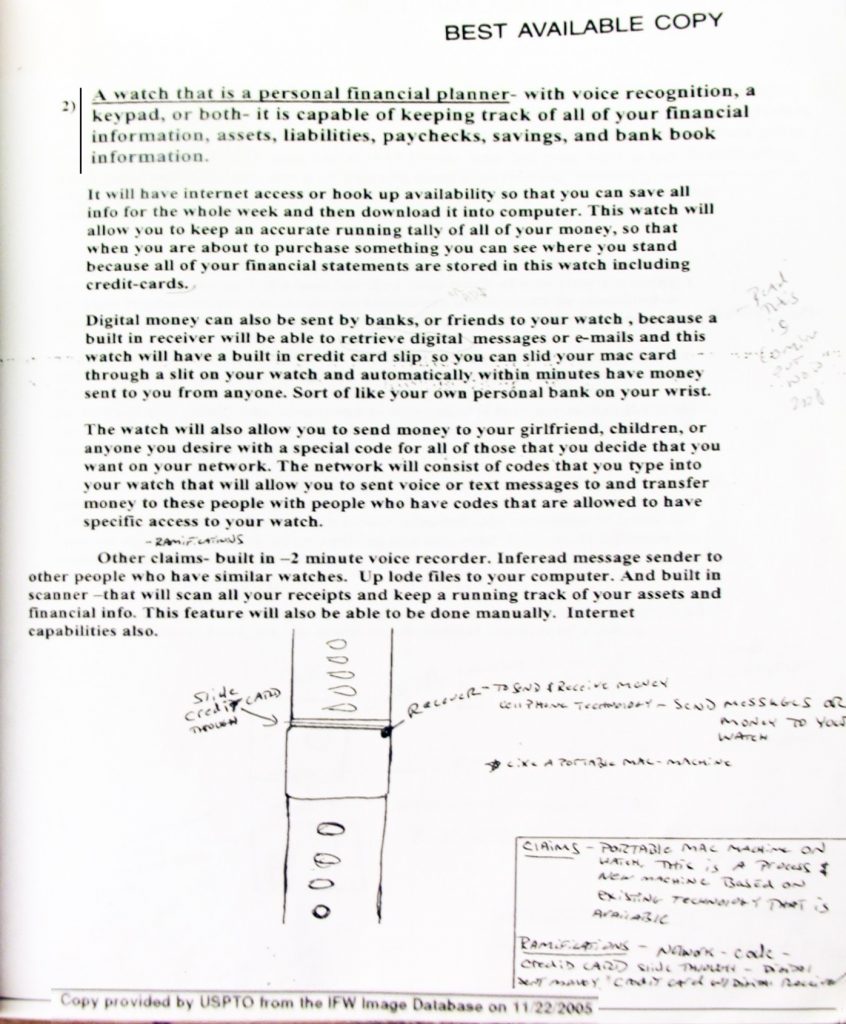 BEST AVAILABLE COPY
2) A watch that is a personal financial planner- with voice recognition, a
keypad, or both- it is capable of keeping track of all of your financial
information, assets, liabilities, paychecks, savings, and bank book
information.
It will have internet access or hook up availability so that you can save all
info for the whole week and then download it into computer. This watch will
allow you to keep an accurate running tally of all of your money, so that
when you are about to purchase something you can see where you stand
because all of your financial statements are stored in this watch including
credit-cards.
Digital money can also be sent by banks, or friends to your watch , because a
built in receiver will be able to retrieve digital messages or e-mails and this
watch will have a built in credit card slip so you can slid your mac card
through a slit on your watch and automatically within minutes have money
sent to you from anyone. Sort of like your own personal bank on your wrist.
The watch will also allow you to send money to your girlfriend, children, or
anyone you desire with a special code for all of those that you decide that you
want on your network. The network will consist of codes that you type into
your watch that will allow you to sent voice or text messages to and transfer
money to these people with people who have codes that are allowed to have
specific access to your watch.
- RAMIFICATIONS
Other claims- built in –2 minute voice recorder. Inferead message sender to
other people who have similar watches. Up lode files to your computer. And built in
scanner –that will scan all your receipts and keep a running track of your assets and
financial info. This feature will also be able to be done manually. Internet
capabilities also.
Slide
Credit CARD
THROUGH
RECEIVER - TO SEND & RECEIVE MONEY
CELLPHONE TECHNOLOGY - SEND MESSAGES OR
MONEY TO YOUR
WATCH
LIKE A PORTABLE MAC-MACHINE
CLAIMS - PORTABLE MAC MACHINE ON
WATCH, THIS IS A PROCESS &
NEW MACHINE BASED ON
EXISTING TECHNOLOGY THAT IS
AVAILABLE
RAMIFICATIONS - NETWORK - code -
CREDIT CARD SLIDE THROUGH - DIGITAL
SENT MONEY CREDIT CARD W/ DIGITAL
Copy provided by USPTO from the IFW Image Database on 11/22/2005